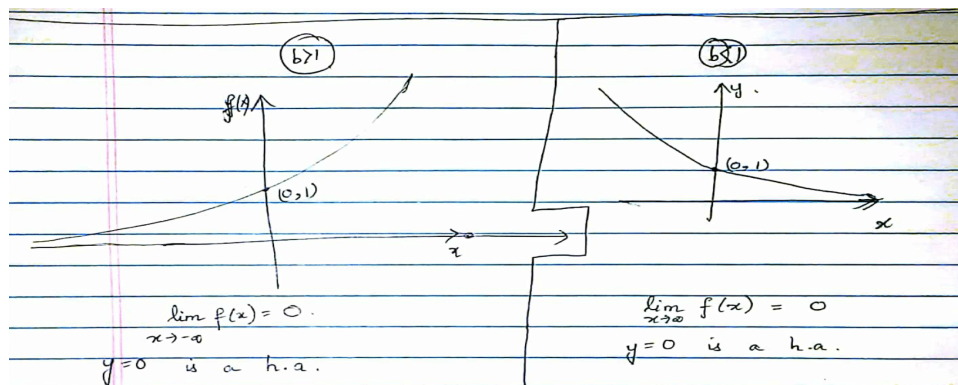 b>1
f(x)
(0,1)
x
lim f(x) = 0.
x→-∞
y=0 is a h.a.
b<1
y.
(0,1)
x
lim f(x) = 0
x→∞
y=0 is a h.a.